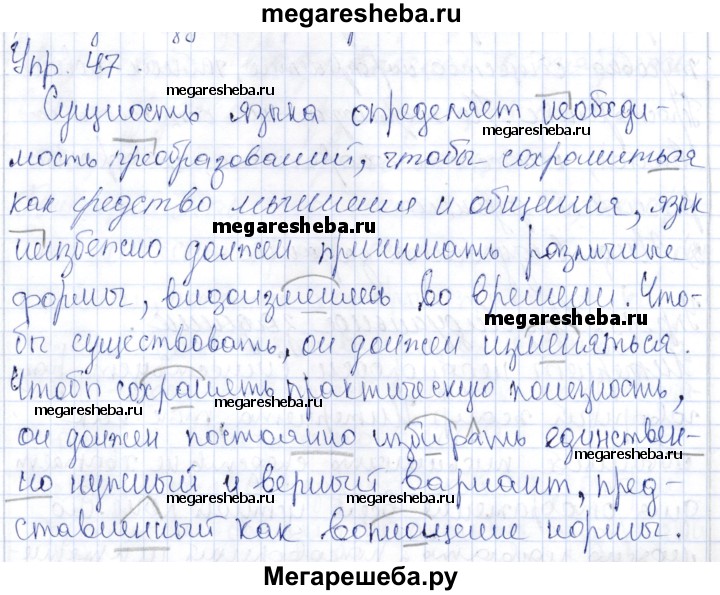 megaresheba.ru
Упр. 47.
megaresheba.ru
Сущность языка определяет необходи-
megaresheba.ru
мость преобразований, чтобы сохраниться
как средство мышления и общения, язык
megaresheba.ru
неизбежно должен принимать различные
формы, видоизменяясь во времени. Что-
megaresheba.ru
бы существовать, он должен изменяться.
Чтобы сохранять практическую полезность,
megaresheba.ru megaresheba.ru
он должен постоянно избирать единствен-
megaresheba.ru
но нужный и верный вариант, пред-
megaresheba.ru megaresheba.ru
ставленный как воплощение нормы.
Мегарешеба.ру